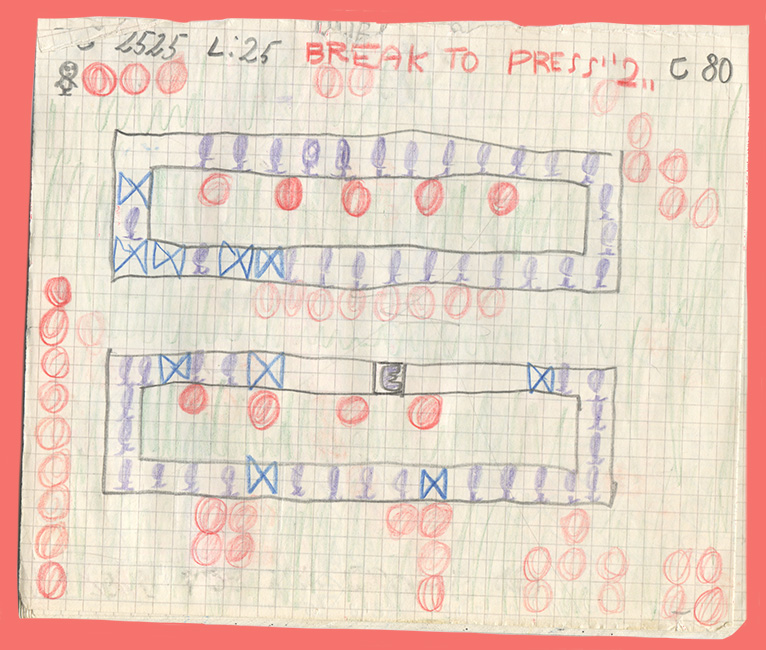 2525 L:25 BREAK TO PRESS "2" C 80
E